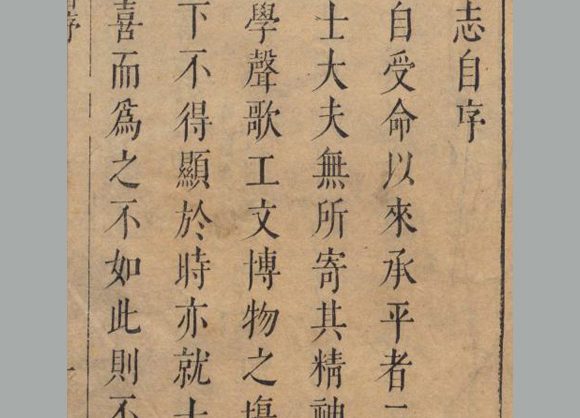 志自序
自受命以來承平者二
士大夫無所寄其精神
學聲歌工文博物之塲
下不得顯於時亦就士
喜而爲之不如此則不